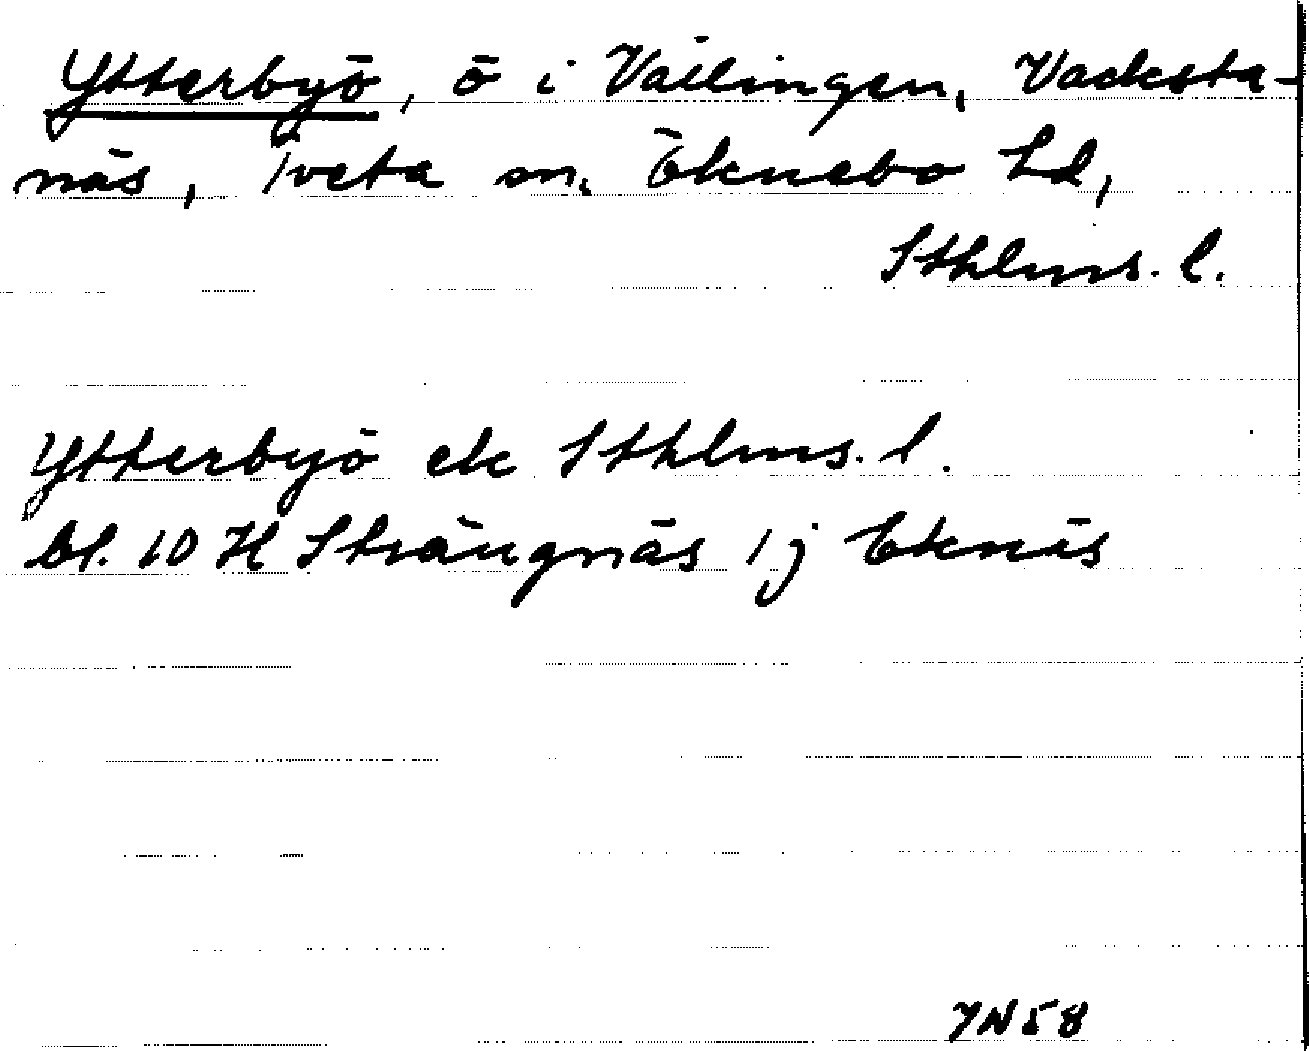 Ytterbyö, ö i Vällingen, Vacksta-
näs, Tveta sn. Öknebo hd,
Sthlms. l.
Ytterbyö ek Sthlms. l.
bl. 10 H Strängnäs 1j Eknäs
YN 58